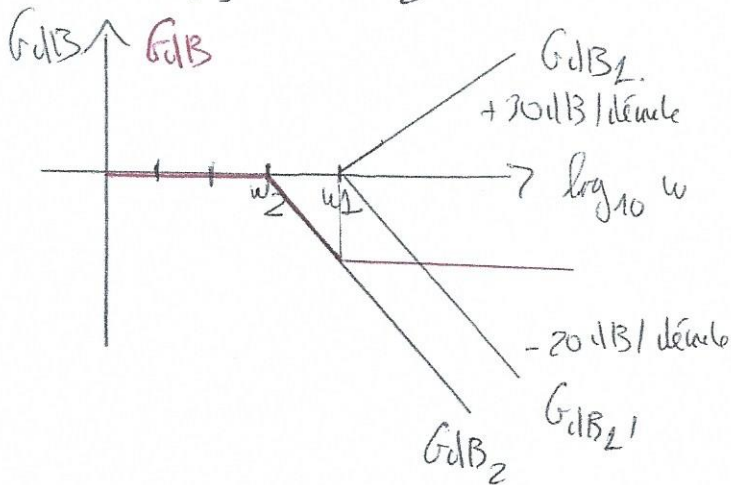 GdB GdB
GdB1.
+30dB/décade
log10 w
w2 w1
-20dB/décade
GdB1'
GdB2